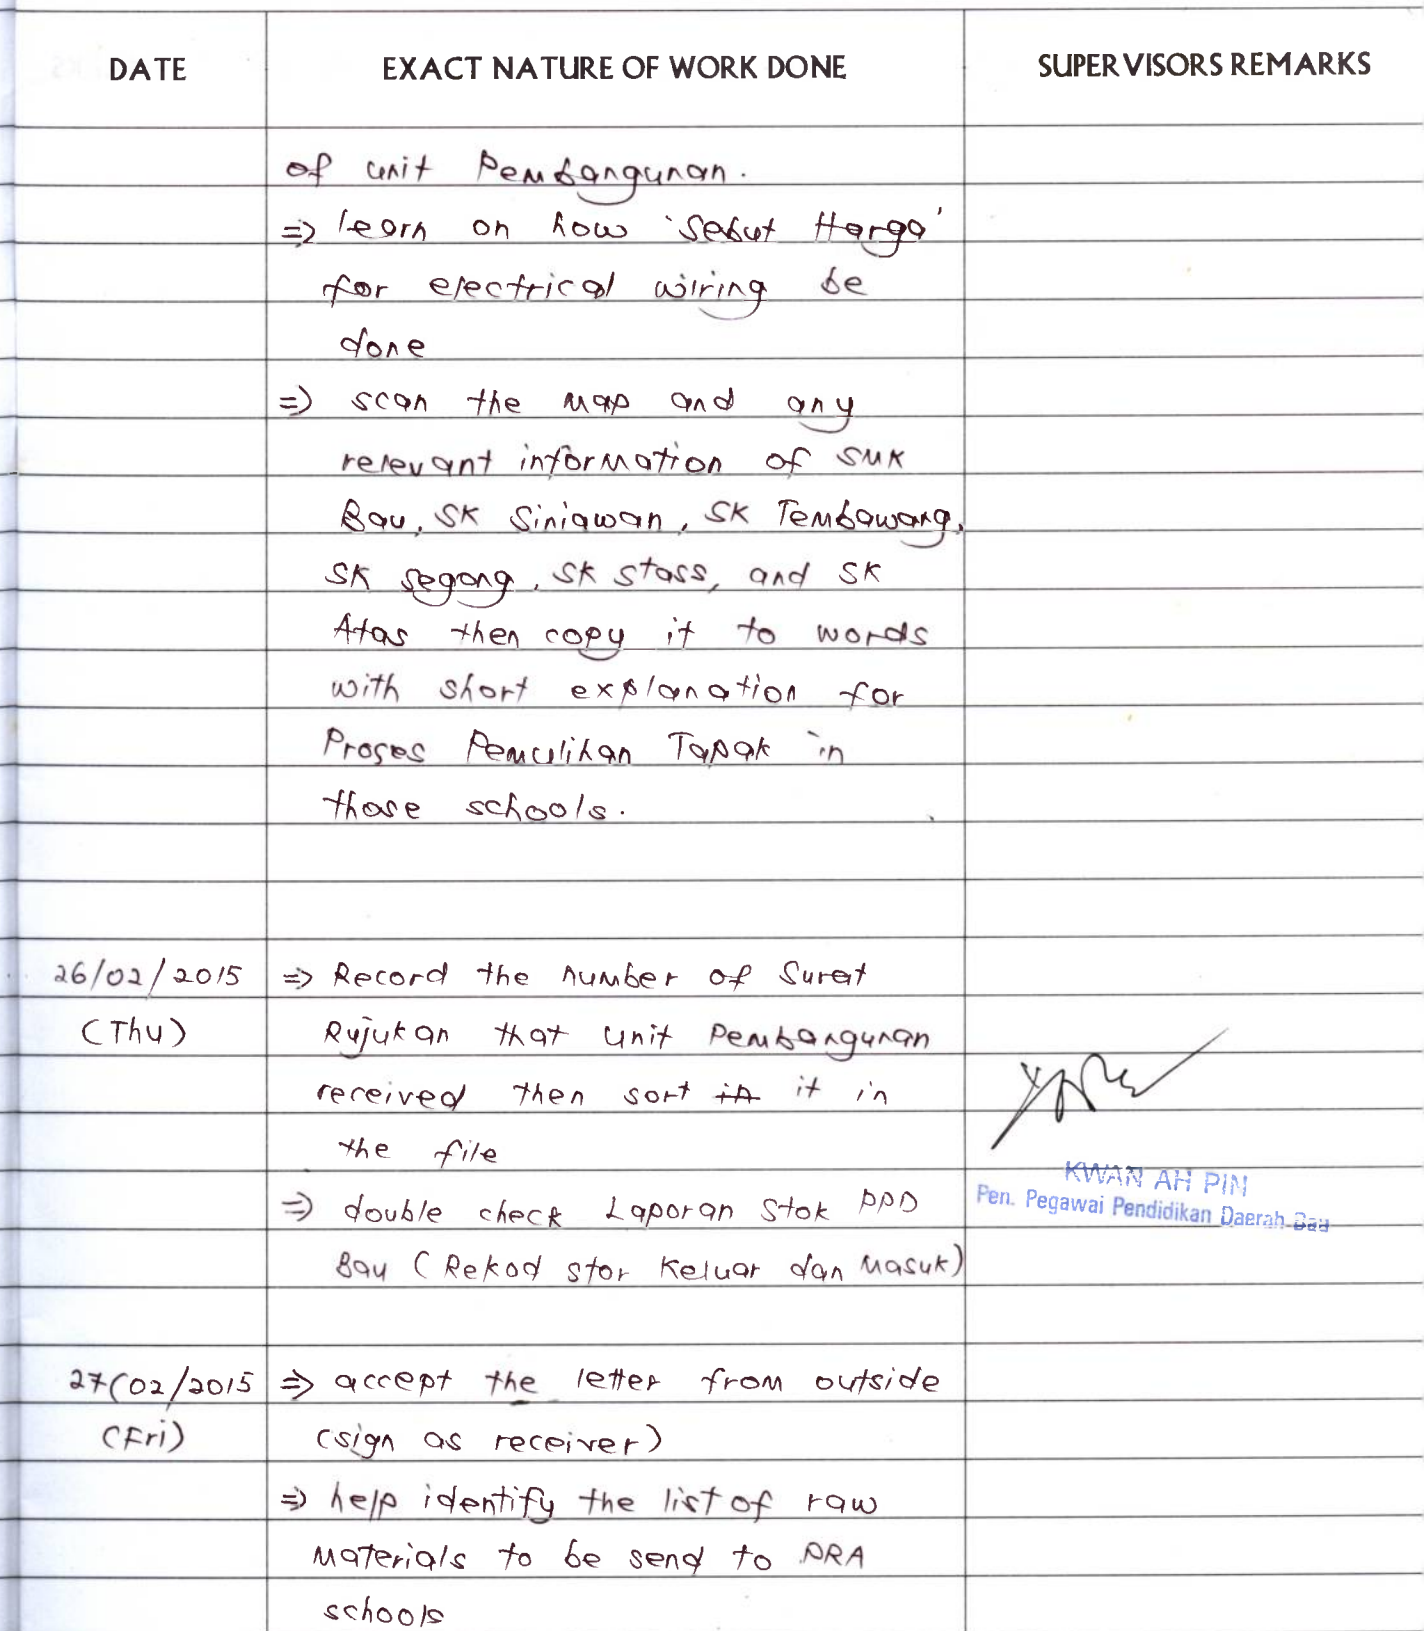 DATE EXACT NATURE OF WORK DONE SUPERVISORS REMARKS
of unit Pembangunan.
=> learn on how 'Sebut Harga'
for electrical wiring be
done
=> scan the map and any
relevant information of SMK
Bau, SK Siniawan, SK Tembawang,
SK Segong, SK Stass, and SK
Atas then copy it to words
with short explanation for
Proses Pemulihan Tapak in
those schools.
26/02/2015 => Record the number of Surat
(Thu) Rujukan that unit Pembangunan
received then sort in it in
the file
=> double check Laporan Stok PPD
Bau (Rekod stor Keluar dan Masuk)
KWAN AH PIN
Pen. Pegawai Pendidikan Daerah Bau
27/02/2015 => accept the letter from outside
(Fri) (sign as receiver)
=> help identify the list of raw
materials to be send to PRA
schools